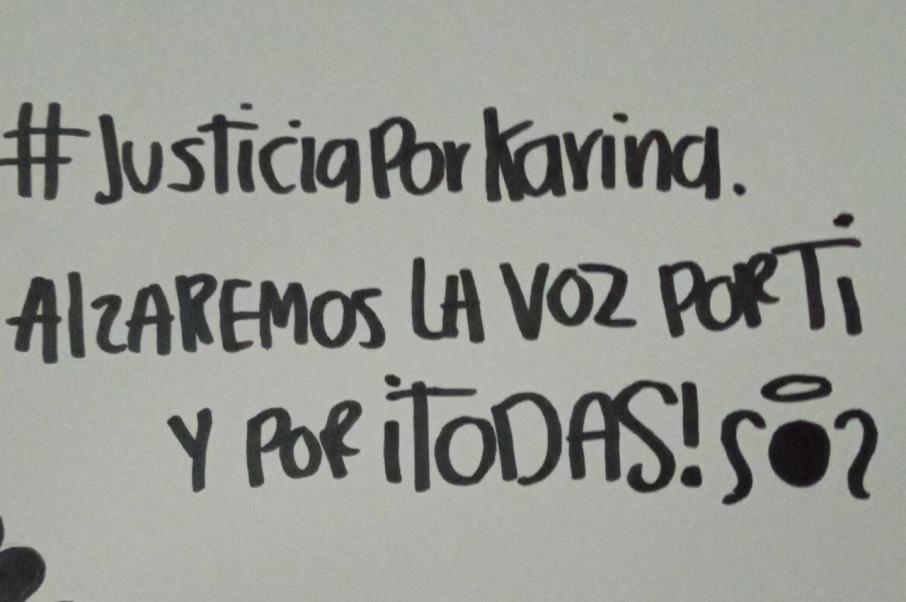 #JusticiaPorKarina.
AlzAREMOS LA VOZ PORTi
Y POR ¡TODAS!